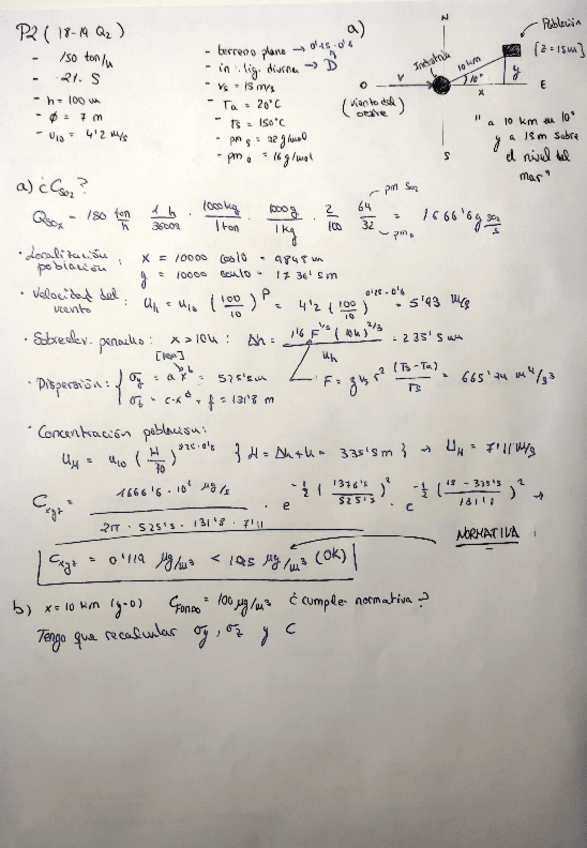 P2 (18-19 Q2)
- 150 ton/h
- 2% S
- h = 100 m
- Ø = 7 m
- U10 = 4'2 m/s
- terreno plano → 0'25·0'6
- lig. diurna → D
- Vs = 15 m/s
- Ta = 20°C
- Ts = 150°C
- pm S = 32 g/mol
- pm O = 16 g/mol
a)
N
Población
[z = 15m]
Industria
10 km
10°
y
x
O
V
E
(viento del oeste)
S
"a 10 km en 10°
y a 18m sobre
el nivel del
mar"
a) ¿C SO2?
pm SO2
Q SOx = 150 ton/h · 1 h/3600s · 1000kg/1 ton · 1000g/1 kg · 2/100 · 64/32 = 1666'6 g SO2/s
pm S
· Localización población: x = 10000 cos10 = 9848 m
y = 10000 sen10 = 1736'5 m
· Velocidad del viento: Uh = U10 (100/10)^P = 4'2 (100/10)^0'25·0'6 = 5'93 m/s
· Sobreelev. penacho: x > 10h: Δh = 1'6 F^1/3 (10h)^2/3 / Uh = 235'5 m
[km]
F = g Vs r² (Ts - Ta)/Ts = 665'74 m⁴/s³
· Dispersión: { σy = a x^b = 525'5 m
σz = c·x^d + f = 131'8 m
· Concentración población:
UH = U10 (H/10)^0'25·0'6 { H = Δh + h = 335'5 m } → UH = 7'11 m/s
Cxyz = 1666'6·10⁶ µg/s / 2π · 525'5 · 131'8 · 7'11 · e^-1/2 (1376'5/525'5)² · e^-1/2 (18 - 335'5/131'8)² →
NORMATIVA
Cxyz = 0'119 µg/m³ < 125 µg/m³ (OK)
b) x = 10 km (y=0) C FONDO = 100 µg/m³ ¿cumple normativa?
Tengo que recalcular σy, σz y C